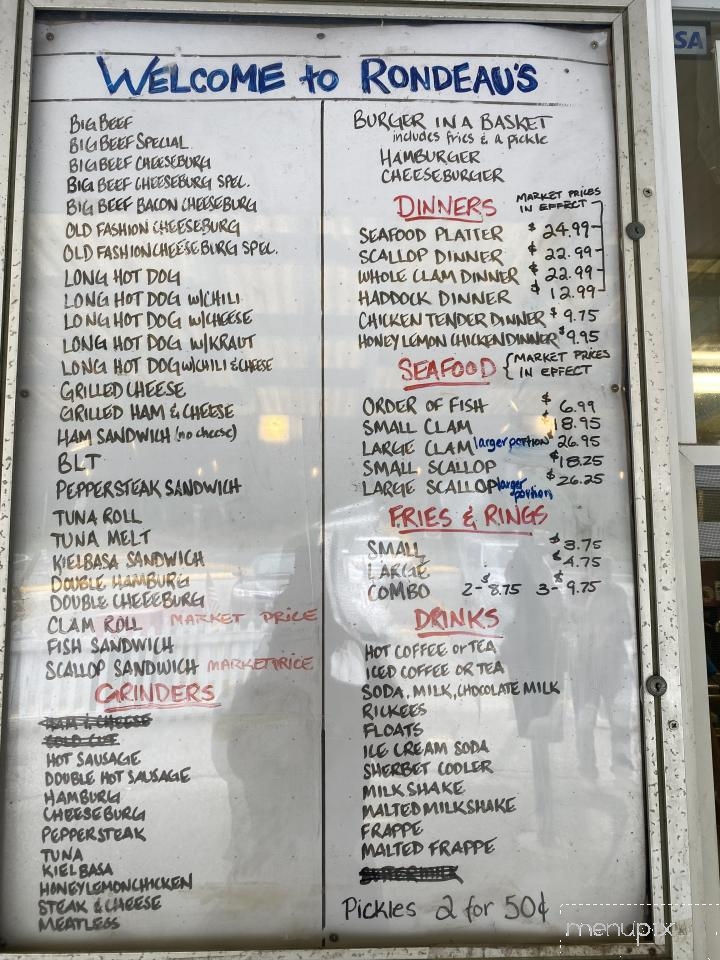 WELCOME to RONDEAU'S
BIG BEEF
BIG BEEF SPECIAL
BIG BEEF CHEESEBURG
BIG BEEF CHEESEBURG SPEC.
BIG BEEF BACON CHEESEBURG
OLD FASHION CHEESEBURG
OLD FASHION CHEESEBURG SPEC.
LONG HOT DOG
LONG HOT DOG W/CHILI
LONG HOT DOG W/CHEESE
LONG HOT DOG W/KRAUT
LONG HOT DOG W/CHILI & CHEESE
GRILLED CHEESE
GRILLED HAM & CHEESE
HAM SANDWICH (no cheese)
BLT
PEPPERSTEAK SANDWICH
TUNA ROLL
TUNA MELT
KIELBASA SANDWICH
DOUBLE HAMBURG
DOUBLE CHEESEBURG
CLAM ROLL MARKET PRICE
FISH SANDWICH
SCALLOP SANDWICH MARKET PRICE
GRINDERS
HAM & CHEESE
COLD CUT
HOT SAUSAGE
DOUBLE HOT SAUSAGE
HAMBURG
CHEESEBURG
PEPPERSTEAK
TUNA
KIELBASA
HONEY LEMON CHICKEN
STEAK & CHEESE
MEATLESS
BURGER IN A BASKET
includes fries & a pickle
HAMBURGER
CHEESEBURGER
DINNERS MARKET PRICES
IN EFFECT
SEAFOOD PLATTER $24.99
SCALLOP DINNER $22.99
WHOLE CLAM DINNER $22.99
HADDOCK DINNER $12.99
CHICKEN TENDER DINNER $9.75
HONEY LEMON CHICKEN DINNER $9.95
SEAFOOD {MARKET PRICES
IN EFFECT
ORDER OF FISH $6.99
SMALL CLAM $18.95
LARGE CLAM larger portion $26.95
SMALL SCALLOP $18.25
LARGE SCALLOP larger portion $26.25
FRIES & RINGS
SMALL $3.75
LARGE $4.75
COMBO 2-$8.75 3-$9.75
DRINKS
HOT COFFEE or TEA
ICED COFFEE OR TEA
SODA, MILK, CHOCOLATE MILK
RICKEES
FLOATS
ICE CREAM SODA
SHERBET COOLER
MILKSHAKE
MALTED MILKSHAKE
FRAPPE
MALTED FRAPPE
Pickles 2 for 50¢
menupix
SA